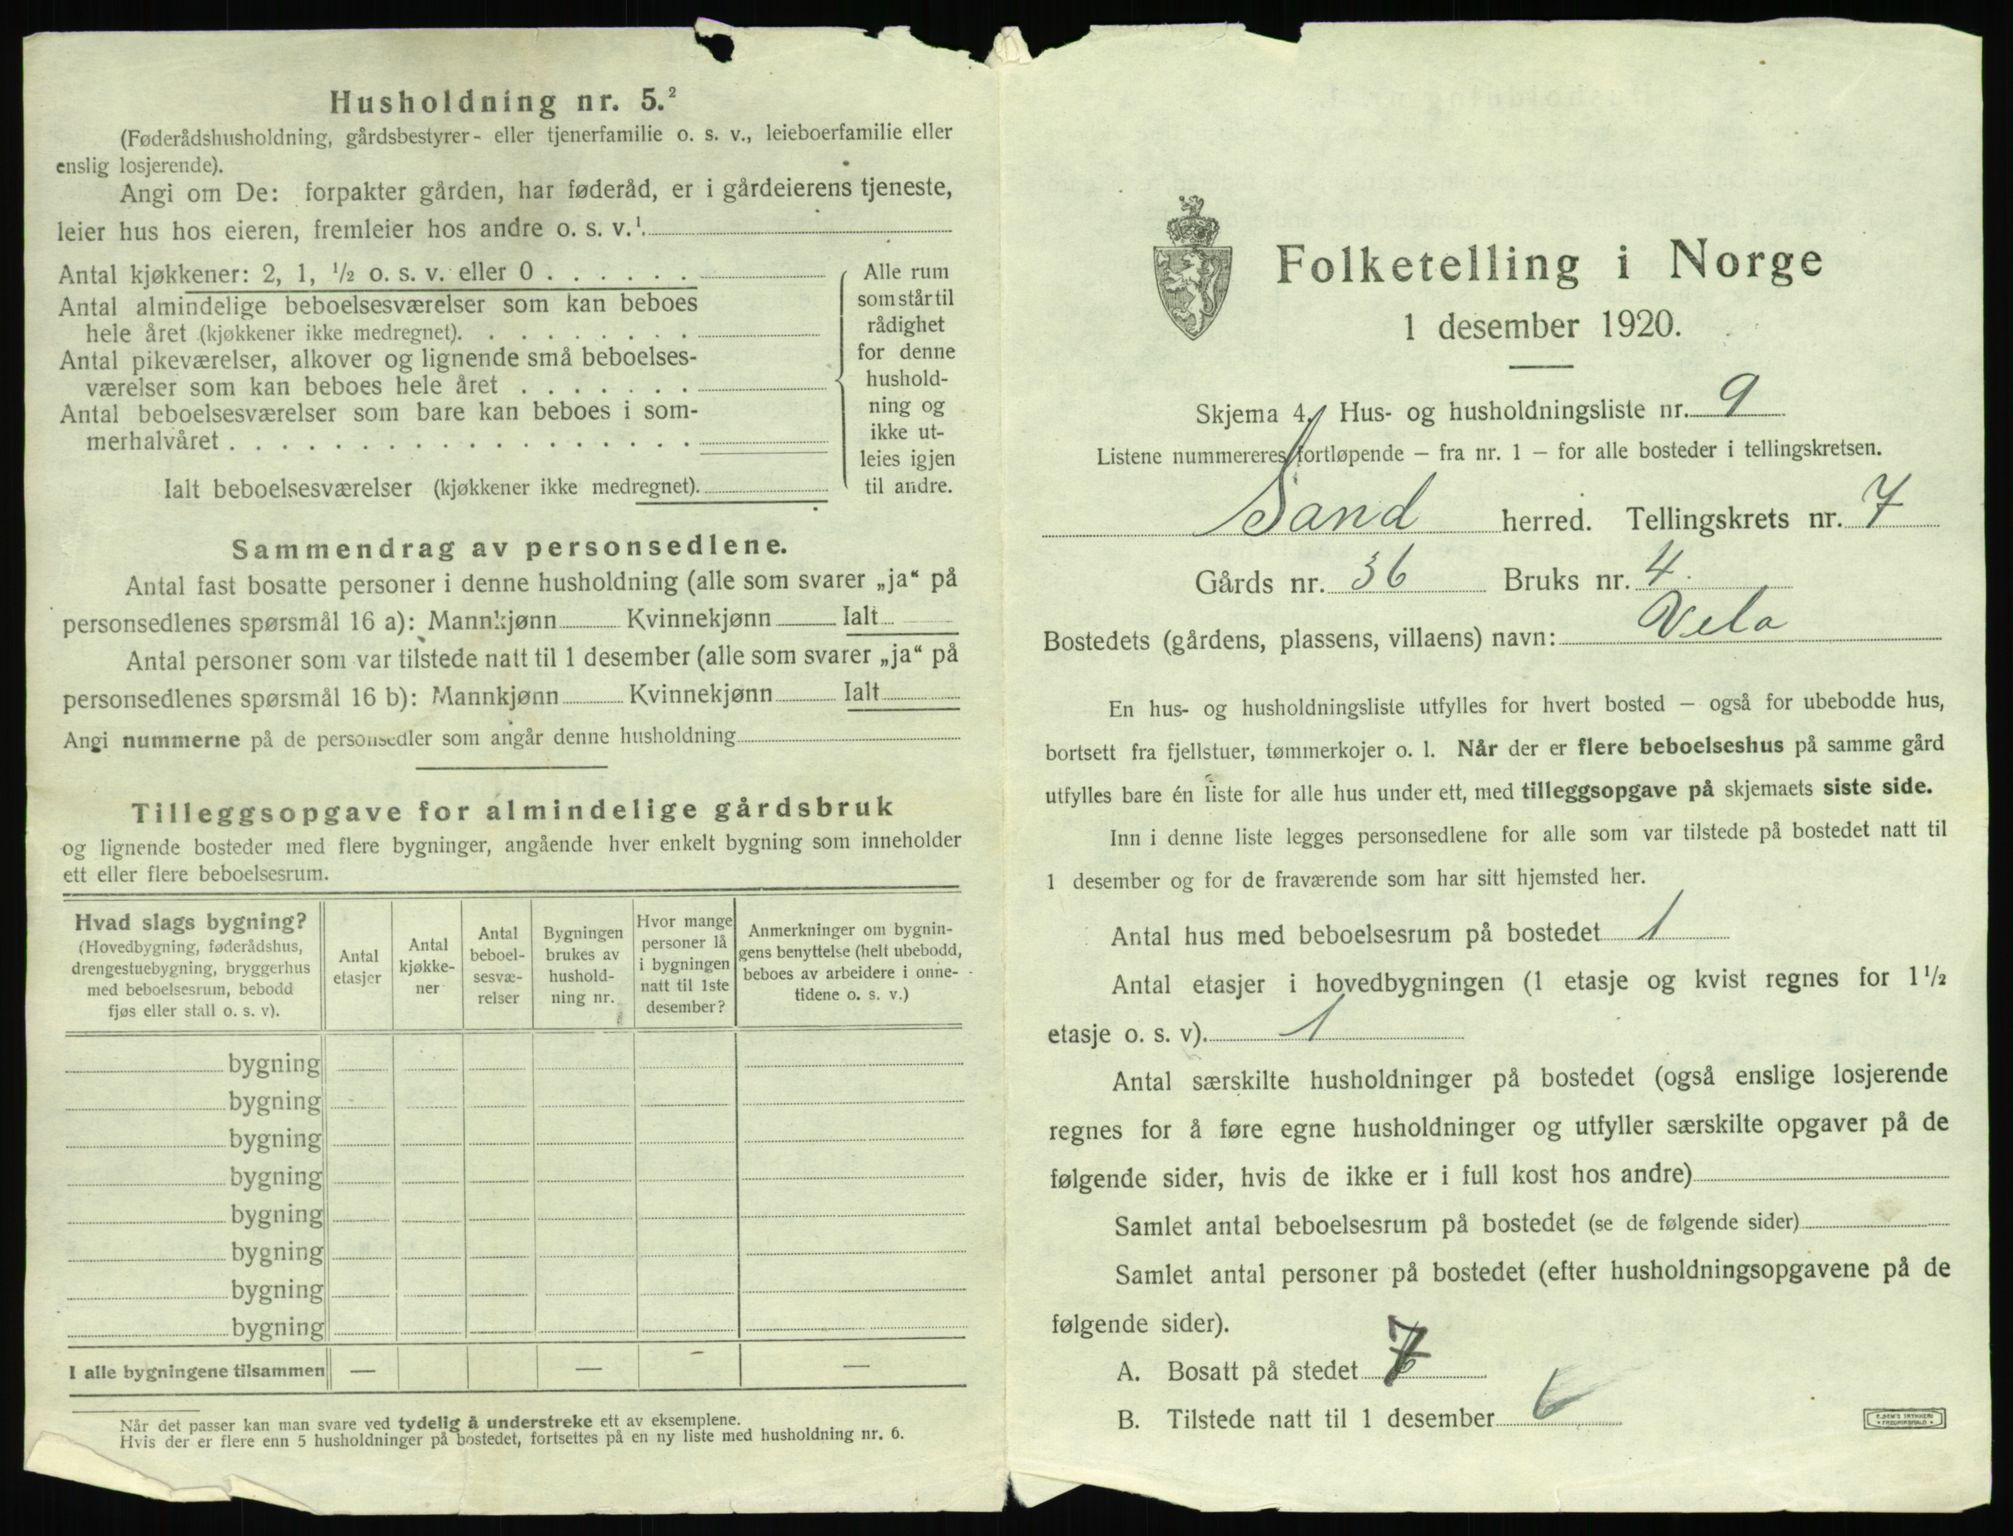 Husholdning nr. 5.²
(Føderådshusholdning, gårdsbestyrer- eller tjenerfamilie o. s. v., leieboerfamilie eller
enslig losjerende).
Angi om De: forpakter gården, har føderåd, er i gårdeierens tjeneste,
leier hus hos eieren, fremleier hos andre o. s. v.¹
Antal kjøkkener: 2, 1, ½ o. s. v. eller 0 . . . . . .
Antal almindelige beboelsesværelser som kan beboes
hele året (kjøkkener ikke medregnet). . . . . . . . .
Antal pikeværelser, alkover og lignende små beboelses-
værelser som kan beboes hele året . . . . . . .
Antal beboelsesværelser som bare kan beboes i som-
merhalvåret . . . . . . . . . . . . . . . . . .
Ialt beboelsesværelser (kjøkkener ikke medregnet).
Alle rum
som står til
rådighet
for denne
hushold-
ning og
ikke ut-
leies igjen
til andre.
Sammendrag av personsedlene.
Antal fast bosatte personer i denne husholdning (alle som svarer „ja“ på
personsedlenes spørsmål 16 a): Mannkjønn Kvinnekjønn Ialt
Antal personer som var tilstede natt til 1 desember (alle som svarer „ja“ på
personsedlenes spørsmål 16 b): Mannkjønn Kvinnekjønn Ialt
Angi nummerne på de personsedler som angår denne husholdning
Tilleggsopgave for almindelige gårdsbruk
og lignende bosteder med flere bygninger, angående hver enkelt bygning som inneholder
ett eller flere beboelsesrum.
Hvad slags bygning?
(Hovedbygning, føderådshus,
drengestuebygning, bryggerhus
med beboelsesrum, bebodd
fjøs eller stall o. s. v).
Antal
etasjer
Antal
kjøkke-
ner
Antal
beboel-
sesvæ-
relser
Bygningen
brukes av
hushold-
ning nr.
Hvor mange
personer lå
i bygningen
natt til 1ste
desember?
Anmerkninger om bygnin-
gens benyttelse (helt ubebodd,
beboes av arbeidere i onne-
tidene o. s. v.)
bygning
bygning
bygning
bygning
bygning
bygning
bygning
bygning
I alle bygningene tilsammen — — —
Når det passer kan man svare ved tydelig å understreke ett av eksemplene.
Hvis der er flere enn 5 husholdninger på bostedet, fortsettes på en ny liste med husholdning nr. 6.
Folketelling i Norge
1 desember 1920.
Skjema 4. Hus- og husholdningsliste nr. 9
Listene nummereres fortløpende — fra nr. 1 — for alle bosteder i tellingskretsen.
Sand herred. Tellingskrets nr. 7
Gårds nr. 36 Bruks nr. 4.
Bostedets (gårdens, plassens, villaens) navn: Vela
En hus- og husholdningsliste utfylles for hvert bosted — også for ubebodde hus,
bortsett fra fjellstuer, tømmerkojer o. l. Når der er flere beboelseshus på samme gård
utfylles bare én liste for alle hus under ett, med tilleggsopgave på skjemaets siste side.
Inn i denne liste legges personsedlene for alle som var tilstede på bostedet natt til
1 desember og for de fraværende som har sitt hjemsted her.
Antal hus med beboelsesrum på bostedet 1
Antal etasjer i hovedbygningen (1 etasje og kvist regnes for 1½
etasje o. s. v). 1
Antal særskilte husholdninger på bostedet (også enslige losjerende
regnes for å føre egne husholdninger og utfyller særskilte opgaver på de
følgende sider, hvis de ikke er i full kost hos andre)
Samlet antal beboelsesrum på bostedet (se de følgende sider)
Samlet antal personer på bostedet (efter husholdningsopgavene på de
følgende sider).
A. Bosatt på stedet 7
B. Tilstede natt til 1 desember 6